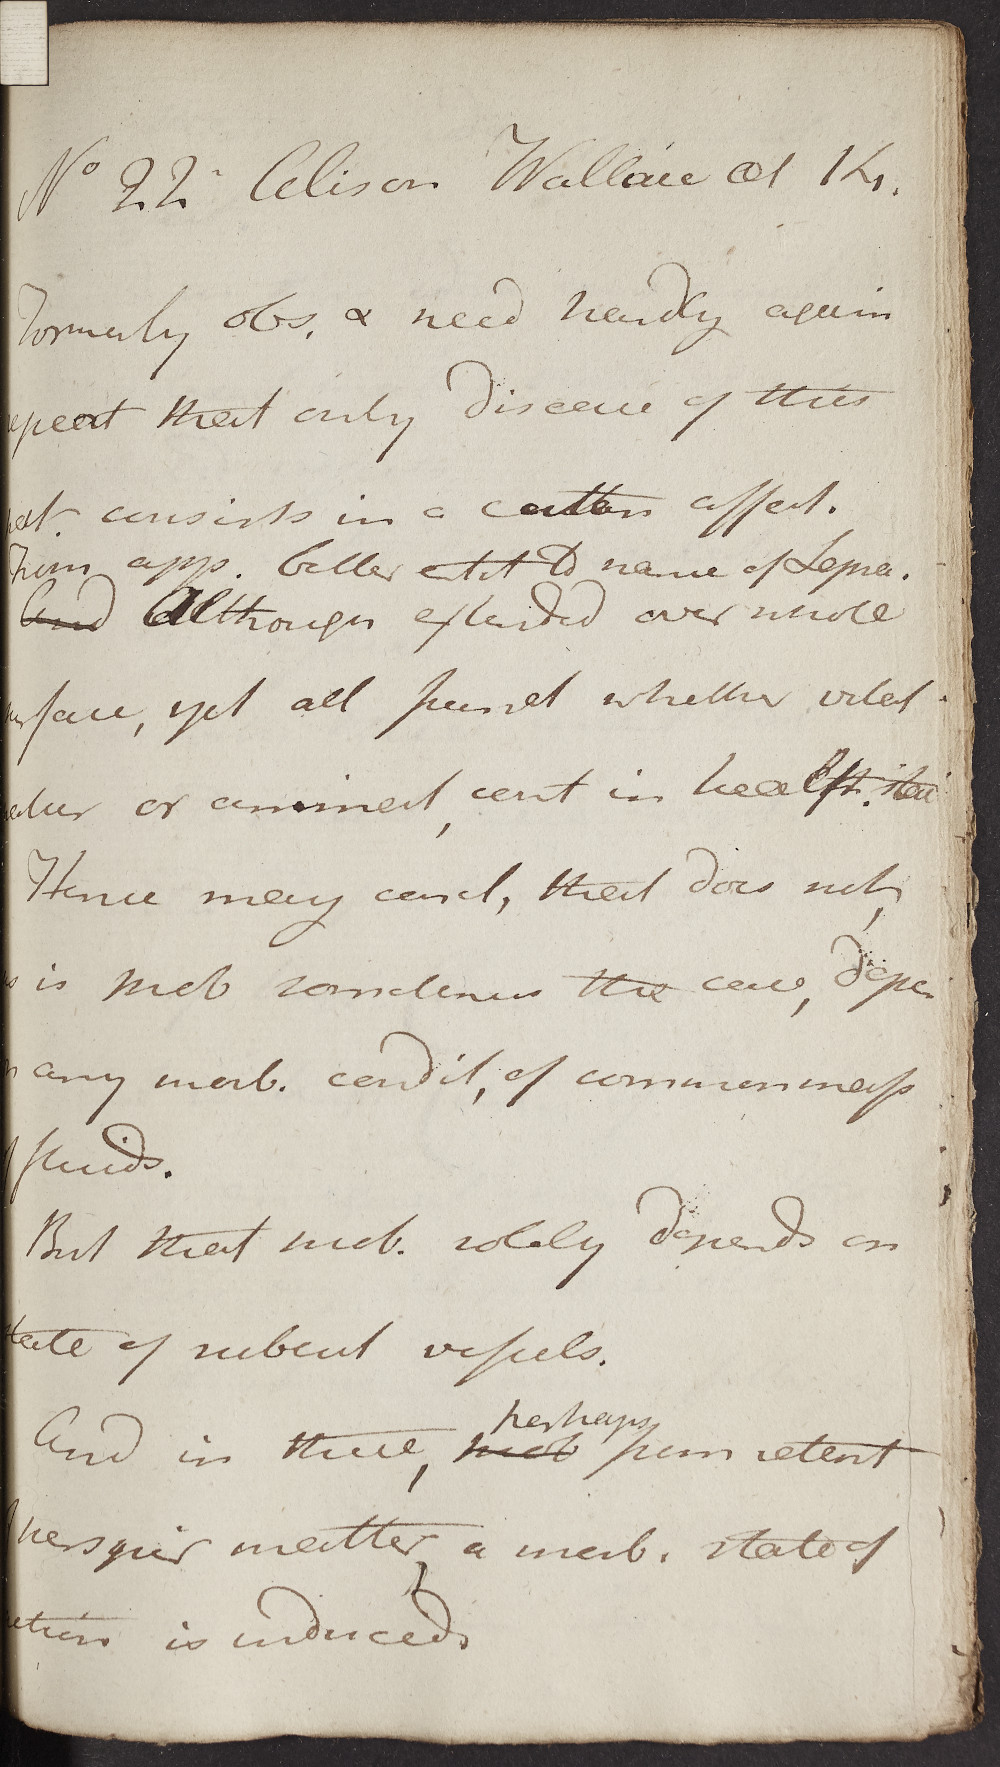 No 22. Alison Wallace æt 14.
Formerly obs. & need hardly again
repeat that only Disease of this
pat. consists in a cutan affect.
From app. better entit to name of Lepra.
And Although extended over whole
surface, yet all funct whether vital
or animal, cont in health. state
Hence may concl, that does not,
as is prob sometimes the case, depe
on any morb. condit, of common mass
of fluids.
But that prob. solely depends on
state of subcut vessels.
And in these, prob perhaps from retent
of perspir matter, a morb. state of
action is induced.